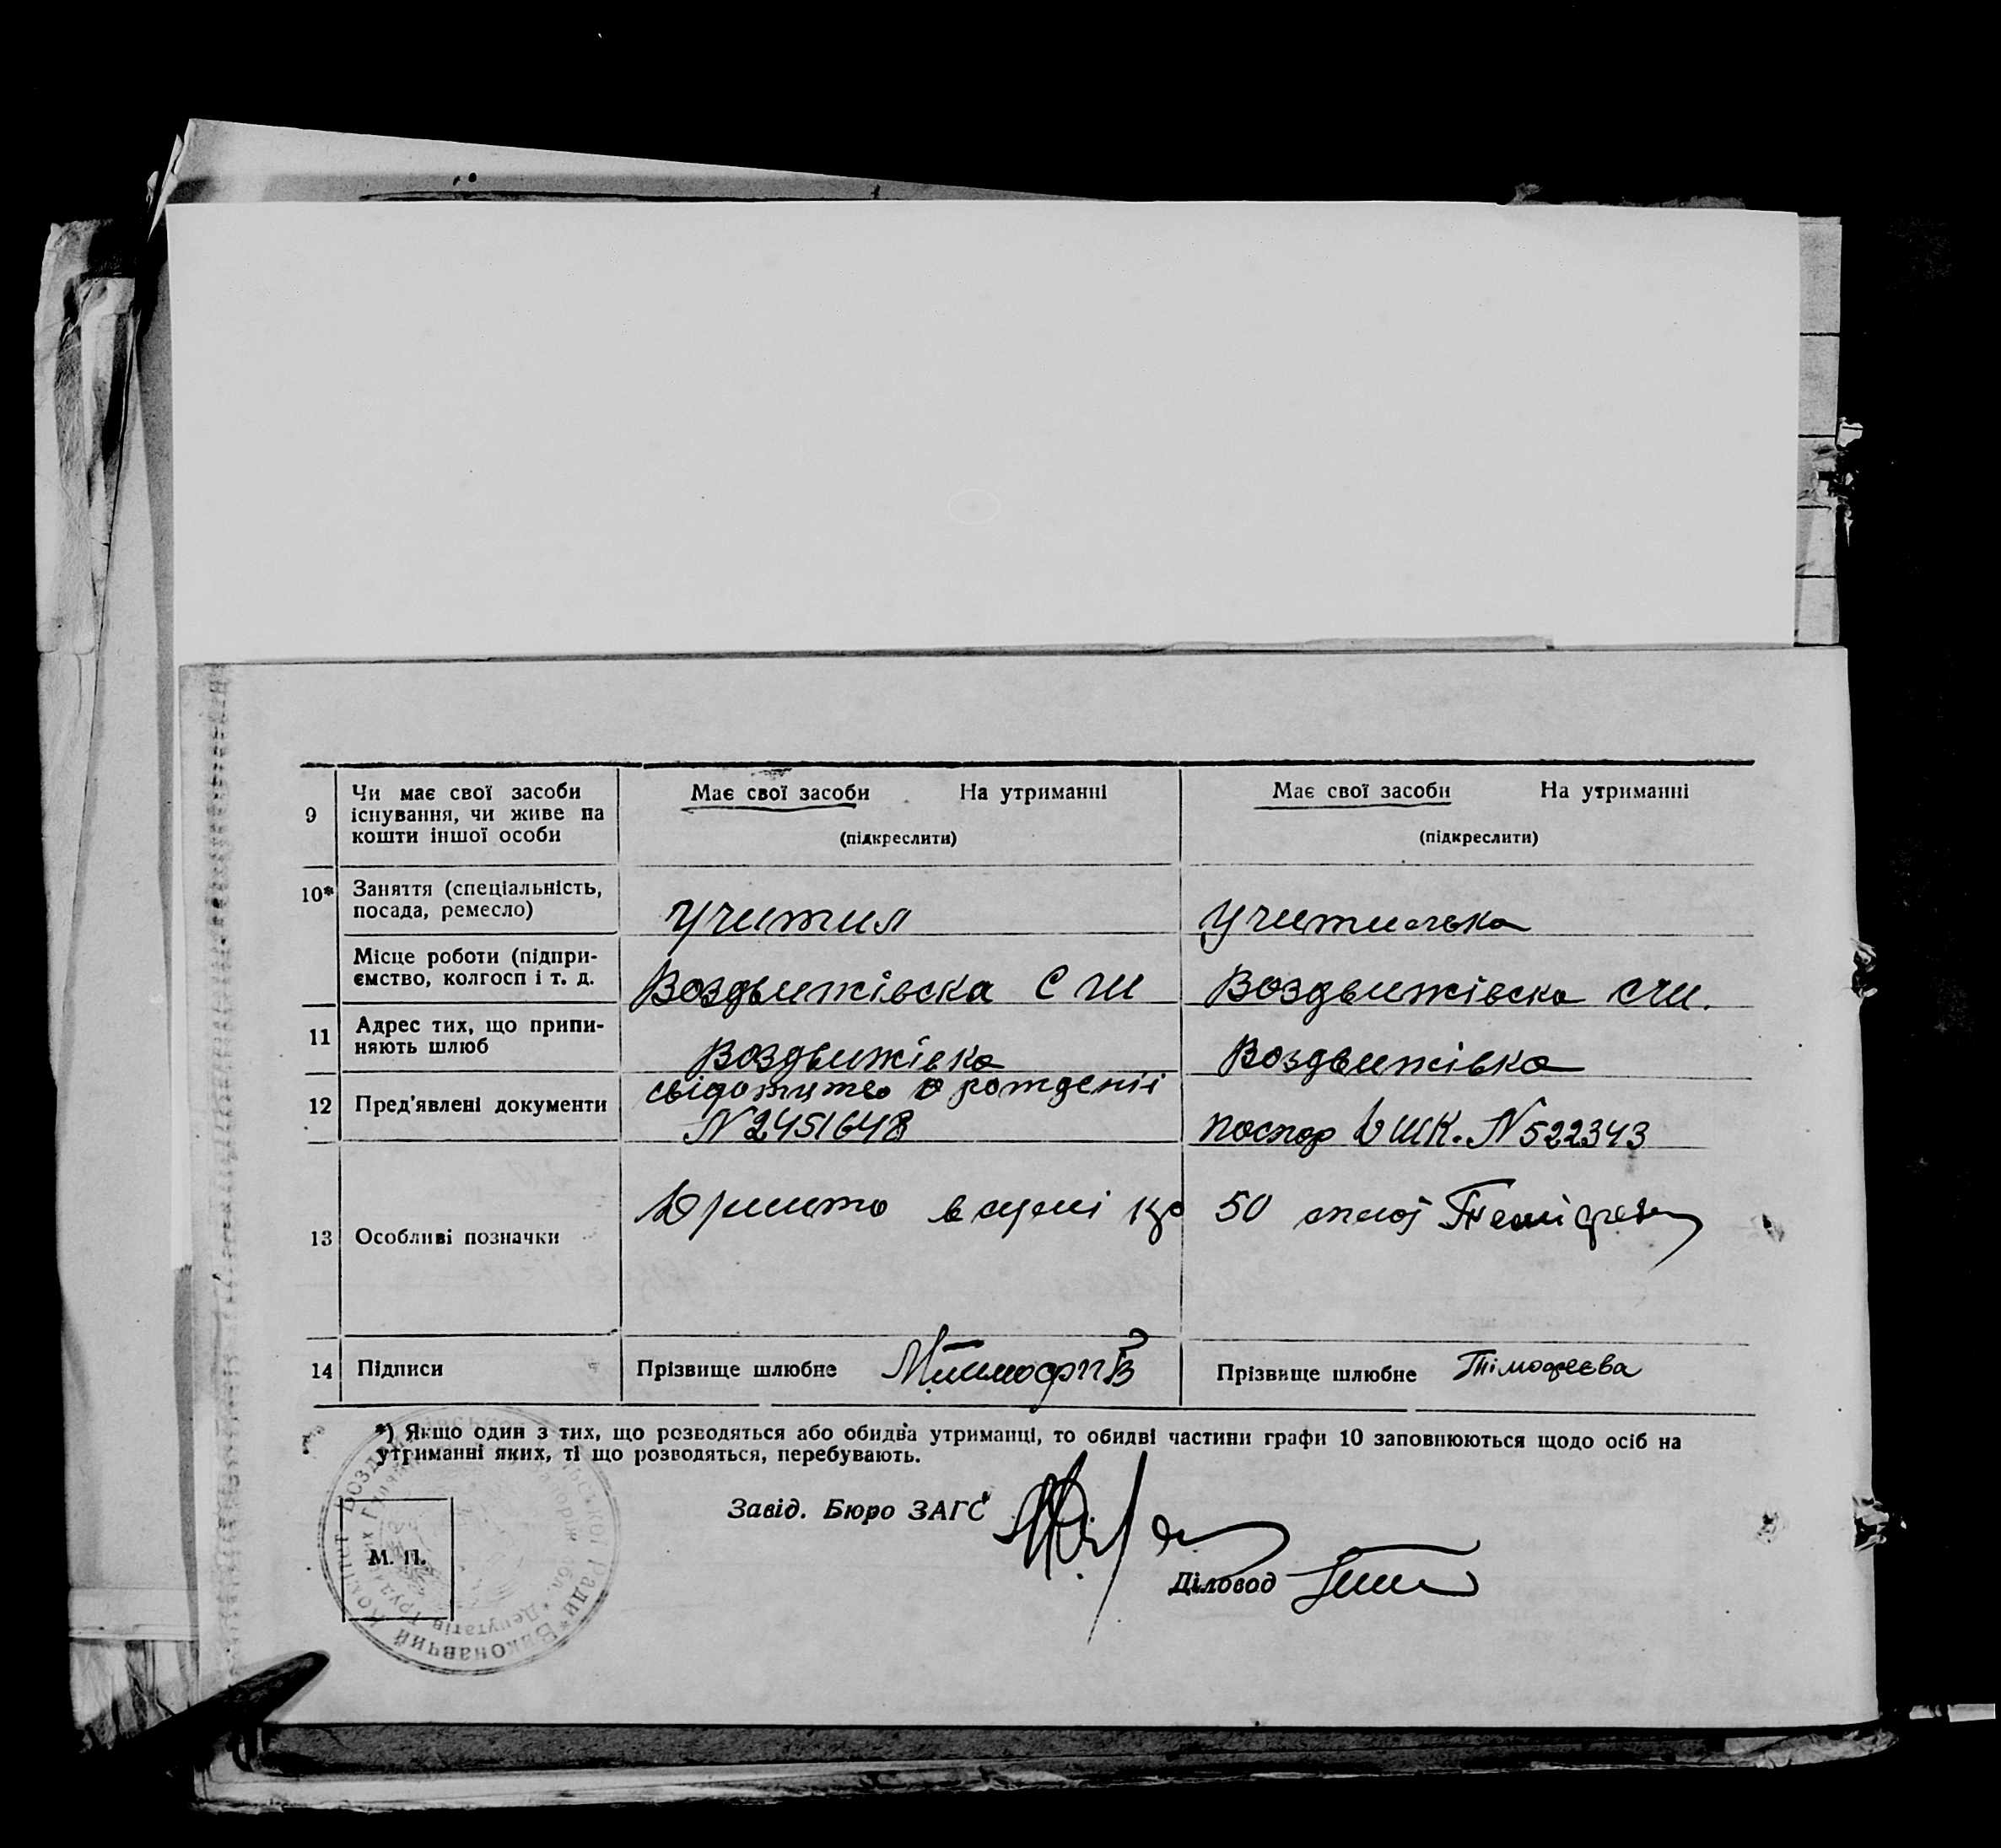 9 Чи має свої засоби існування, чи живе на кошти іншої особи
Має свої засоби На утриманні
(підкреслити)
Має свої засоби На утриманні
(підкреслити)
10* Заняття (спеціальність, посада, ремесло)
учител
учителька
Місце роботи (підприємство, колгосп і т. д.
Воздвижівска С Ш
Воздвижівска СШ.
11 Адрес тих, що припиняють шлюб
Воздвижівка
Воздвижівка
12 Пред'явлені документи
свідотцтво о рожденіі
N 2451648
N 522343
13 Особливі позначки
в сумі
50
14 Підписи
Прізвище шлюбне
Прізвище шлюбне Тімофеєва
*) Якщо один з тих, що розводяться або обидва утриманці, то обидві частини графи 10 заповнюються щодо осіб на
утриманні яких, ті що розводяться, перебувають.
Завід. Бюро ЗАГС
Діловод
М. П.
Виконавчий Комітет
Ради
Депутатів Трудящих